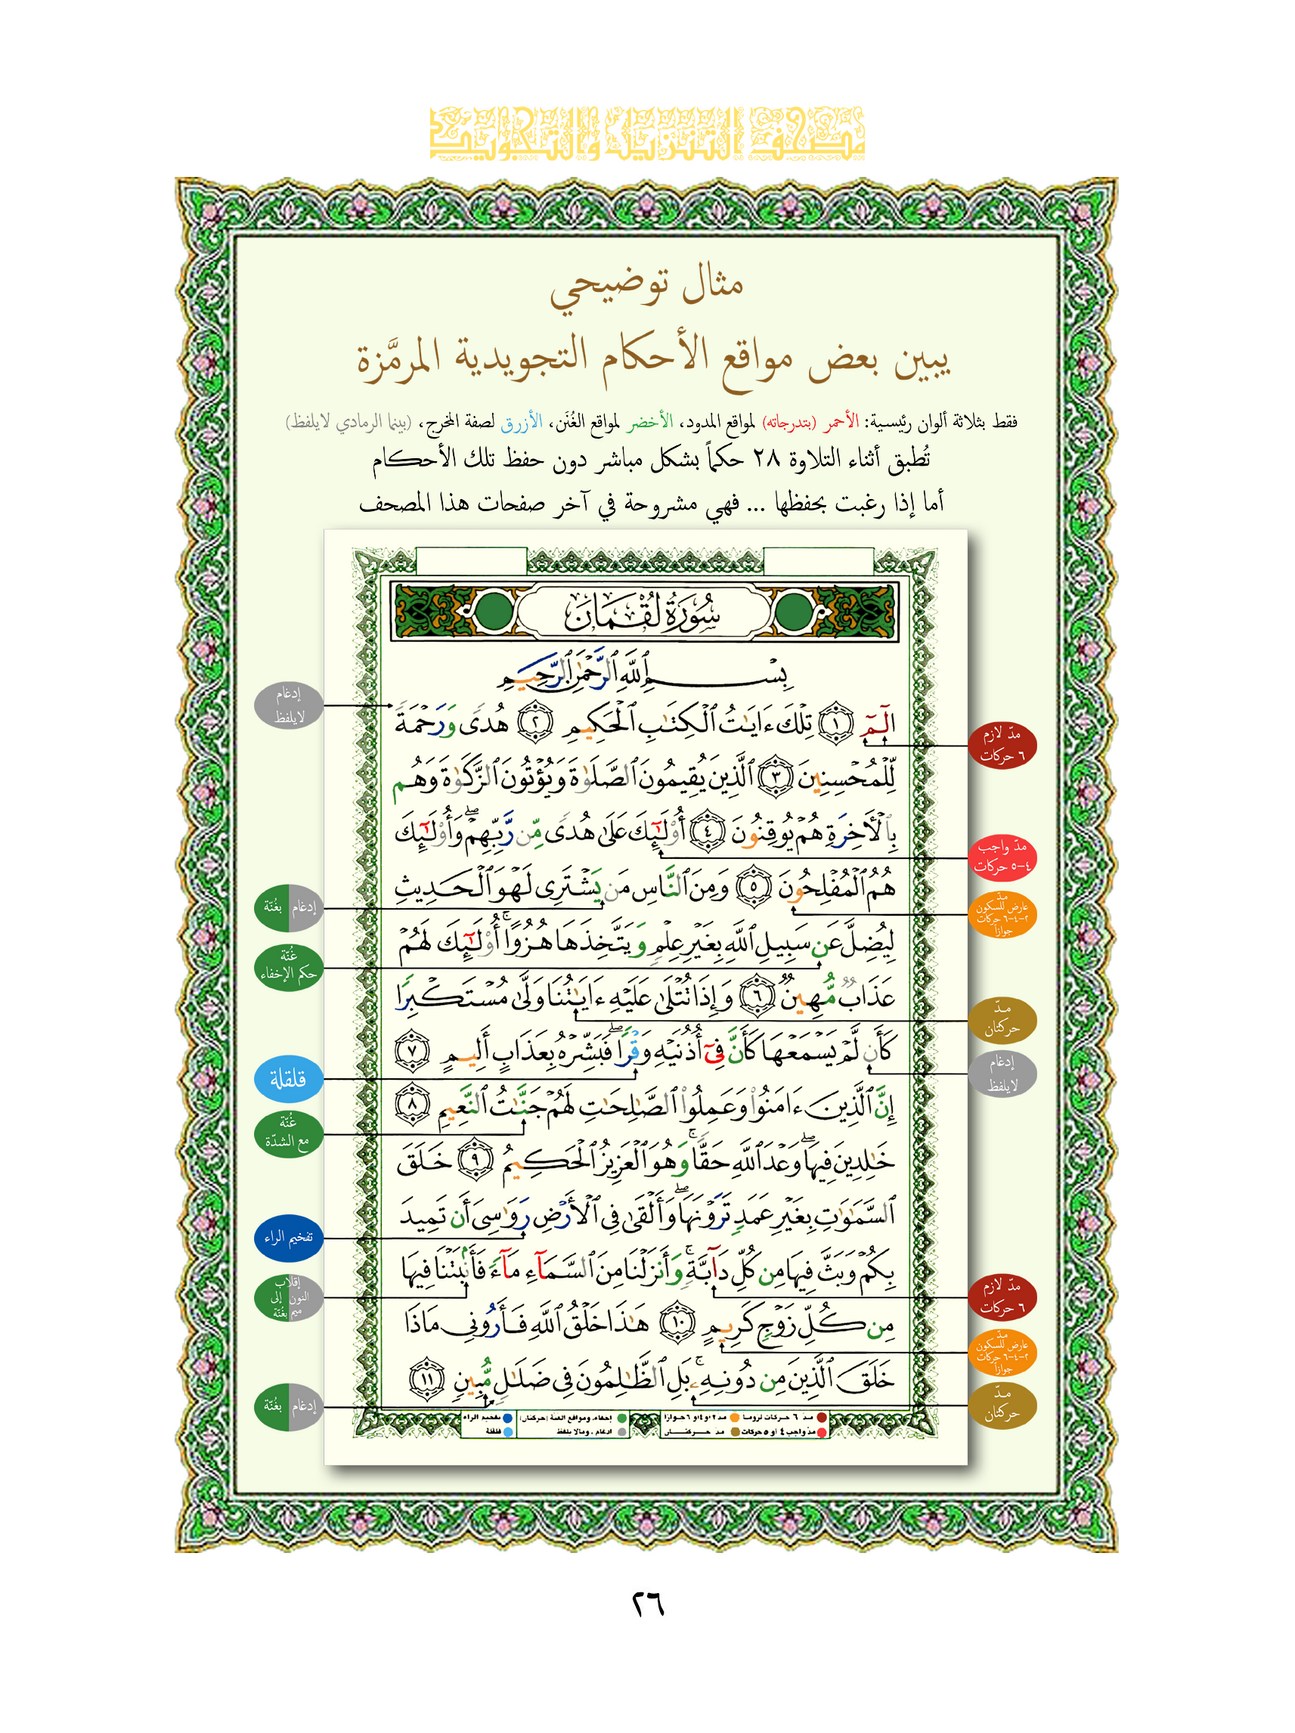 مصحف الترتيل والتجويد
مثال توضيحي
يبين بعض مواقع الأحكام التجويدية المرمَّزة
فقط بثلاثة ألوان رئيسية: الأحمر (بتدرجاته) لمواقع المدود، الأخضر لمواقع الغُنَن، الأزرق لصفة المخرج، (بينما الرمادي لايلفظ)
تُطبق أثناء التلاوة ٢٨ حكماً بشكل مباشر دون حفظ تلك الأحكام
أما إذا رغبت بحفظها ... فهي مشروحة في آخر صفحات هذا المصحف
سُورَةُ لُقْمَان
بِسْمِ ٱللَّهِ ٱلرَّحْمَٰنِ ٱلرَّحِيمِ
الٓمٓ ١ تِلْكَ ءَايَٰتُ ٱلْكِتَٰبِ ٱلْحَكِيمِ ٢ هُدًى وَرَحْمَةً
لِّلْمُحْسِنِينَ ٣ ٱلَّذِينَ يُقِيمُونَ ٱلصَّلَوٰةَ وَيُؤْتُونَ ٱلزَّكَوٰةَ وَهُم
بِٱلْأَخِرَةِ هُمْ يُوقِنُونَ ٤ أُوْلَٰٓئِكَ عَلَىٰ هُدًى مِّن رَّبِّهِمْ ۖ وَأُوْلَٰٓئِكَ
هُمُ ٱلْمُفْلِحُونَ ٥ وَمِنَ ٱلنَّاسِ مَن يَشْتَرِى لَهْوَ ٱلْحَدِيثِ
لِيُضِلَّ عَن سَبِيلِ ٱللَّهِ بِغَيْرِ عِلْمٍ وَيَتَّخِذَهَا هُزُوًا ۚ أُوْلَٰٓئِكَ لَهُمْ
عَذَابٌ مُّهِينٌ ٦ وَإِذَا تُتْلَىٰ عَلَيْهِ ءَايَٰتُنَا وَلَّىٰ مُسْتَكْبِرًا
كَأَن لَّمْ يَسْمَعْهَا كَأَنَّ فِىٓ أُذُنَيْهِ وَقْرًا ۖ فَبَشِّرْهُ بِعَذَابٍ أَلِيمٍ ٧
إِنَّ ٱلَّذِينَ ءَامَنُوا۟ وَعَمِلُوا۟ ٱلصَّٰلِحَٰتِ لَهُمْ جَنَّٰتُ ٱلنَّعِيمِ ٨
خَٰلِدِينَ فِيهَا ۖ وَعْدَ ٱللَّهِ حَقًّا ۚ وَهُوَ ٱلْعَزِيزُ ٱلْحَكِيمُ ٩ خَلَقَ
ٱلسَّمَٰوَٰتِ بِغَيْرِ عَمَدٍ تَرَوْنَهَا ۖ وَأَلْقَىٰ فِى ٱلْأَرْضِ رَوَٰسِىَ أَن تَمِيدَ
بِكُمْ وَبَثَّ فِيهَا مِن كُلِّ دَآبَّةٍ ۚ وَأَنزَلْنَا مِنَ ٱلسَّمَآءِ مَآءً فَأَنۢبَتْنَا فِيهَا
مِن كُلِّ زَوْجٍ كَرِيمٍ ١٠ هَٰذَا خَلْقُ ٱللَّهِ فَأَرُونِى مَاذَا
خَلَقَ ٱلَّذِينَ مِن دُونِهِۦ ۚ بَلِ ٱلظَّٰلِمُونَ فِى ضَلَٰلٍ مُّبِينٍ ١١
مدّ لازم
٦ حركات
مدّ واجب
٤-٥ حركات
مدّ
عارض للسكون
٢-٤-٦ حركات
جوازاً
مدّ
حركتان
إدغام
لايلفظ
مدّ لازم
٦ حركات
مدّ
عارض للسكون
٢-٤-٦ حركات
جوازاً
مدّ
حركتان
إدغام
لايلفظ
إدغام بغُنّة
غُنّة
حكم الإخفاء
قلقلة
غُنّة
مع الشدّة
تفخيم الراء
إقلاب
النون إلى
ميم بغُنّة
إدغام بغُنّة
مد ٦ حركات لزوماً
مد ٢ او ٤ او ٦ جوازاً
إخفاء، ومواقع الغنة (حركتان)
تفخيم الراء
مدّ واجب ٤ او ٥ حركات
مد حركتان
ادغام، ومالا يلفظ
قلقلة
٢٦